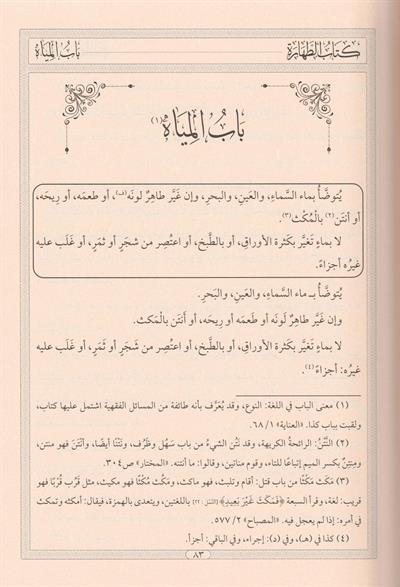 كتاب الطهارة
باب المياه
باب المياه(١)
يُتوضَّأُ بماء السَّماءِ، والعَينِ، والبحرِ، وإن غَيَّر طاهِرٌ لونَه(ف)، أو طعمَه، أو رِيحَه،
أو أنتَن(٢) بالْمُكْث(٣).
لا بماءٍ تَغيَّر بكثرة الأوراقِ، أو بالطَّبخِ، أو اعتُصِر من شجَرٍ أو ثمَرٍ، أو غَلَب عليه
غيرُه أجزاءً.
يُتوضَّأُ بـ ماء السَّماءِ، والعَينِ، والبَحرِ.
وإن غَيَّر طاهِرٌ لَونَه أو طَعمَه أو رِيحَه، أو أَنتَن بالمَكث.
لا بماءٍ تَغيَّر بكَثرةِ الأوراقِ، أو بالطَّبخِ، أو اعتُصِر من شجَرٍ أو ثَمَرٍ، أو غَلَب عليه
غيرُه: أجزاءً(٤).
(١) معنى الباب في اللغة: النوع، وقد يُعرَّف بأنه طائفة من المسائل الفقهية اشتمل عليها كتاب،
ولقبت بباب كذا. «العناية» ١/ ٦٨.
(٢) النَّتْنُ: الرائحةُ الكريهة، وقد نَتُن الشيءُ من باب سَهُل وظَرُف، ونَتْنًا أيضًا، وأنْتَنَ فهو منتن،
ومِنْتِنٌ بكسر الميم إتباعًا للتاء، وقوم مناتين، وقالوا: ما أنتنه. «المختار» ص٣٠٤.
(٣) مَكَث مَكْثًا من باب قتل: أقام وتلبث، فهو ماكث، ومَكُث مُكْثًا فهو مكيث، مثل قَرُب قُرْبًا فهو
قريب: لغة، وقرأ السبعة ﴿فَمَكَثَ غَيْرَ بَعِيدٍ﴾ [النمل: ٢٢] باللغتين، ويتعدى بالهمزة، فيقال: أمكثه وتمكث
في أمره: إذا لم يعجل فيه. «المصباح» ٢/ ٥٧٧.
(٤) كذا في (هـ)، وفي (د): إجراء، وفي الباقي: أجزأ.
٨٣